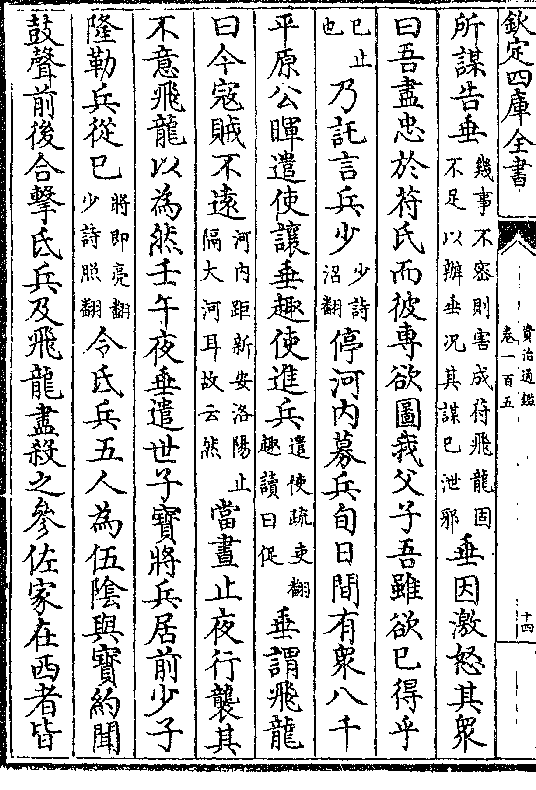 欽定四庫全書
資治通鑑
卷一百五
十四
所謀告垂幾事不密則害成苻飛龍固不足以辦垂況其謀已泄邪垂因激怒其衆
曰吾盡忠於苻氏而彼專欲圖我父子吾雖欲已得乎
已止也乃託言兵少少詩沼翻停河内募兵旬日間有衆八千
平原公暉遣使讓垂趣使進兵遣使疏吏翻趣讀曰促垂謂飛龍
曰今寇賊不遠河内距新安洛陽止隔大河耳故云然當晝止夜行襲其
不意飛龍以為然壬午夜垂遣世子寳將兵居前少子
隆勒兵從已將即亮翻少詩照翻令氐兵五人為伍隂與寳約聞
鼓聲前後合擊氐兵及飛龍盡殺之參佐家在西者皆